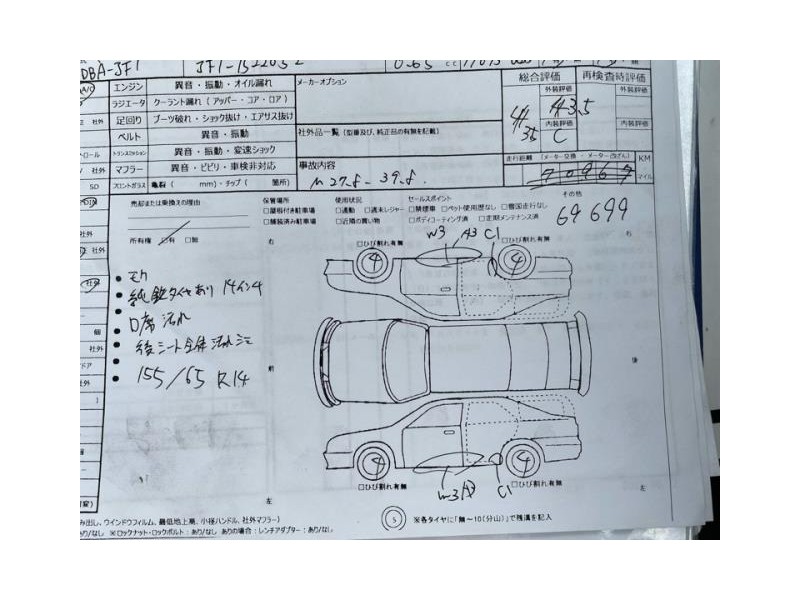 DBA-JF1
JF1-1522052
0.65 cc
エンジン 異音・振動・オイル漏れ
ラジエータ クーラント漏れ(アッパー・コア・ロア)
足回り ブーツ破れ・ショック抜け・エアサス抜け
ベルト 異音・振動
トランスミッション 異音・振動・変速ショック
マフラー 異音・ビビリ・車検非対応
フロントガラス 亀裂( mm)・チップ( 箇所)
メーカーオプション
社外品一覧(型番及び、純正品の有無を記載)
事故内容
総合評価 再検査時評価
外装評価 外装評価
内装評価 内装評価
C
走行距離 (メーター交換・メーター改ざん) KM
マイル
70967
69699
売却または乗換えの理由
所有権 □有 □無
保管場所
□屋根付き駐車場
□舗装済み駐車場
使用状況
□通勤 □週末レジャー
□近隣の買い物
セールスポイント
□禁煙車 □ペット使用歴なし □雪国走行なし
□ボディコーティング済 □定期メンテナンス済
その他
右 右
W3 A3 C1
□ひび割れ有無 □ひび割れ有無
4 4
純正タイヤあり 14インチ
D席汚れ
後シート全体汚れシミ
155/65 R14
前 後
4 4
□ひび割れ有無 □ひび割れ有無
W3 A3 C1
左 左
み出し、ウインドウフィルム、最低地上高、小径ハンドル、社外マフラー)
なし ※ロックナット・ロックボルト:あり/なし ありの場合:レンチアダプター:あり/なし
5
※各タイヤに「無~10(分山)」で残溝を記入